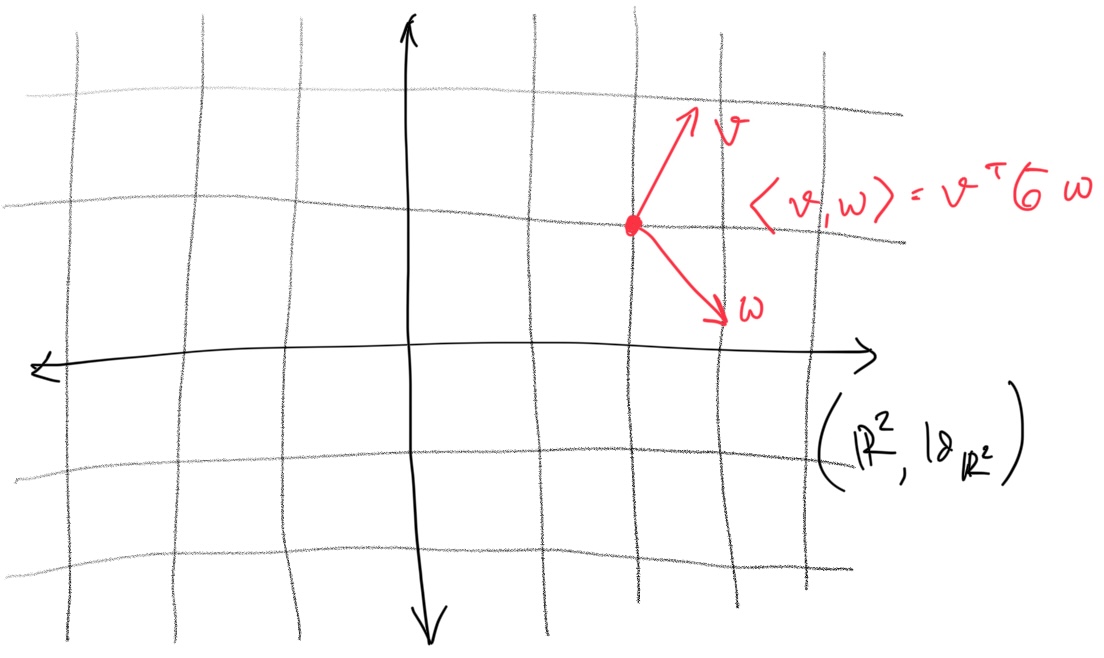 v
⟨v,w⟩ = v^T G w
w
(ℝ^2, Id_{ℝ^2})